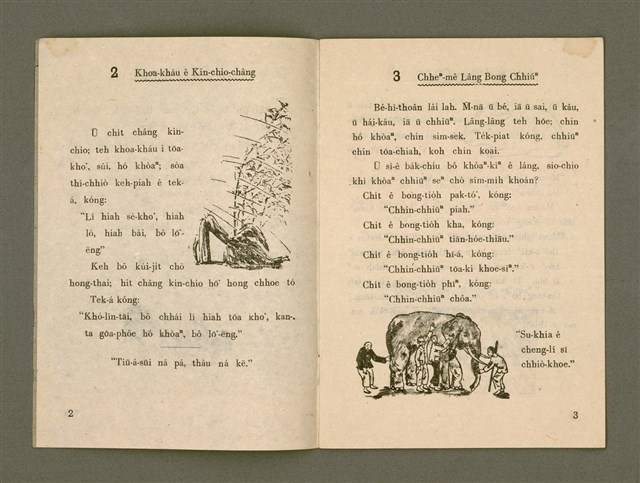 2 Khoa-kháu ê Kin-chio-châng
Ū chit châng kin-
chio; teh khoa-kháu i tōa-
kho͘, súi, hó khòaⁿ; sòa
thí-chhiò keh-piah ê tek-
á, kóng:
“Lí hiah sè-kho͘, hiah
lò, hiah bái, bô lō͘-
ēng”
Keh bô kúi-jit chò
hong-thai; hit châng kin-chio hō͘ hong chhoe tó
Tek-á kóng:
“Khó-lîn-tāi, bô chhái lí hiah tōa kho͘, kan-
ta gōa-phôe hó khòaⁿ, bô lō͘-ēng.”
“Tiū-á-sūi ná pá, thâu ná kē.”
2
3 Chheⁿ-mê Lâng Bong Chhiūⁿ
Bé-hì-thoân lâi lah. M-nā ū bé, iā ū sai, ū kâu,
ū hái-káu, iā ū chhiūⁿ. Lâng-lâng teh hōe; chin
hó khòaⁿ, chin sim-sek. Te̍k-piat kóng, chhiūⁿ
chin tōa-chiah, koh chin koai.
Ū sì-ê ba̍k-chiu bô khòaⁿ-kìⁿ ê lâng, sio-chio
khì khòaⁿ chhiūⁿ seⁿ chò sim-mih khoán?
Chit ê bong-tio̍h pak-tó͘, kóng:
“Chhin-chhiūⁿ piah.”
Chit ê bong-tio̍h kha, kóng:
“Chhin-chhiūⁿ tiān-hóe-thiāu.”
Chit ê bong-tio̍h hī-á, kóng:
“Chhin-chhiūⁿ tōa-ki khoe-sìⁿ.”
Chit ê bong-tio̍h phīⁿ, kóng:
“Chhin-chhiūⁿ chôa.”
“Su-khia ê
cheng-lí sī
chhiò-khoe.”
3